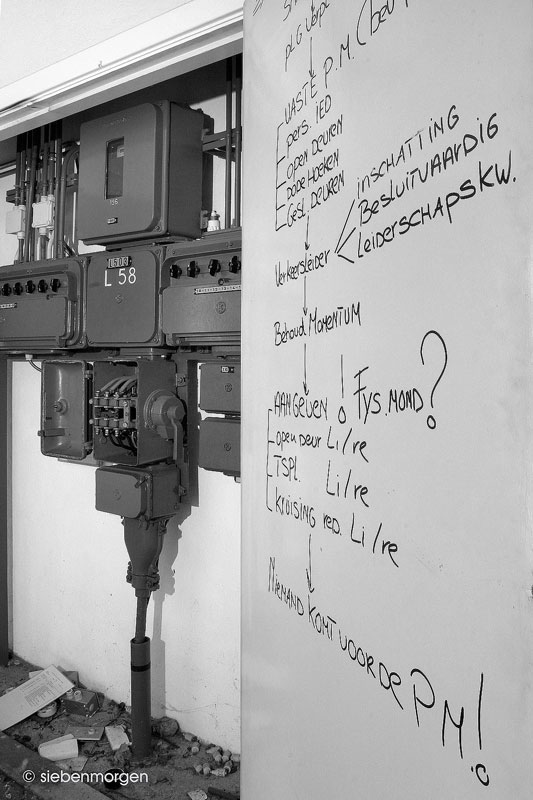 PLG
VASTE P.M.
pers. IED
OPEN DEUREN
Dode HOEKEN
Gesl. DEUREN
INSCHATTING
BESLUITVAARDIG
LeideRSCHAPSKW.
Verkeersleider
Behoud MOMENTUM
AANGEVEN ! FYS. MOND?
open deur Li/re
TSPL. Li/re
KRuising red. Li/re
NIEMAND KOMT VOOR DE PM!
L 58
© siebenmorgen